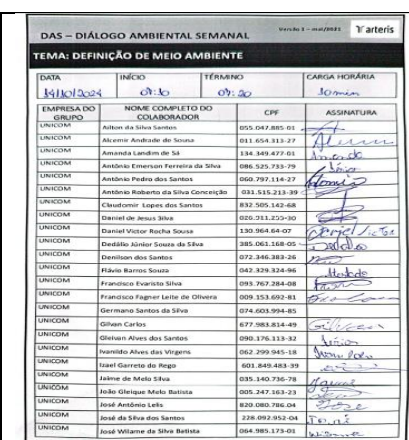 DAS – DIÁLOGO AMBIENTAL SEMANAL Versão 1 – mai/2021 arteris
TEMA: DEFINIÇÃO DE MEIO AMBIENTE
DATA INÍCIO TÉRMINO CARGA HORÁRIA
14/10/2024 07:10 07:20 10min
EMPRESA DO GRUPO NOME COMPLETO DO COLABORADOR CPF ASSINATURA
UNICOM Ailton da Silva Santos 055.047.885-01
UNICOM Alcemir Andrade de Sousa 011.654.313-27
UNICOM Amanda Landim de Sá 134.349.477-01 Amanda
UNICOM Antônio Emerson Ferreira da Silva 086.525.733-79
UNICOM Antônio Pedro dos Santos 060.797.114-27 Antonio
UNICOM Antônio Roberto da Silva Conceição 031.515.213-39
UNICOM Claudomir Lopes dos Santos 832.505.142-68
UNICOM Daniel de Jesus Silva 026.911.255-30
UNICOM Daniel Victor Rocha Sousa 130.964.64-07 Daniel Victor
UNICOM Dedálio Júnior Souza da Silva 385.061.168-05
UNICOM Denilson dos Santos 072.346.383-26
UNICOM Flávio Barros Souza 042.329.324-96
UNICOM Francisco Evaristo Silva 093.767.284-08
UNICOM Francisco Fagner Leite de Olivera 009.153.692-81
UNICOM Germano Santos da Silva 074.603.994-85
UNICOM Gilvan Carlos 677.983.814-49 Gilvan
UNICOM Gleivan Alves dos Santos 090.176.113-32
UNICOM Ivanildo Alves das Virgens 062.299.945-18
UNICOM Izael Garreto do Rego 601.849.483-39
UNICOM Jaime de Melo Silva 035.140.736-78
UNICOM João Gleique Melo Batista 005.247.163-23
UNICOM José Antônio Lelis 820.080.786.04 Jose
UNICOM José da Silva dos Santos 228.092.952-04
UNICOM José Wilame da Silva Batista 064.985.173-01